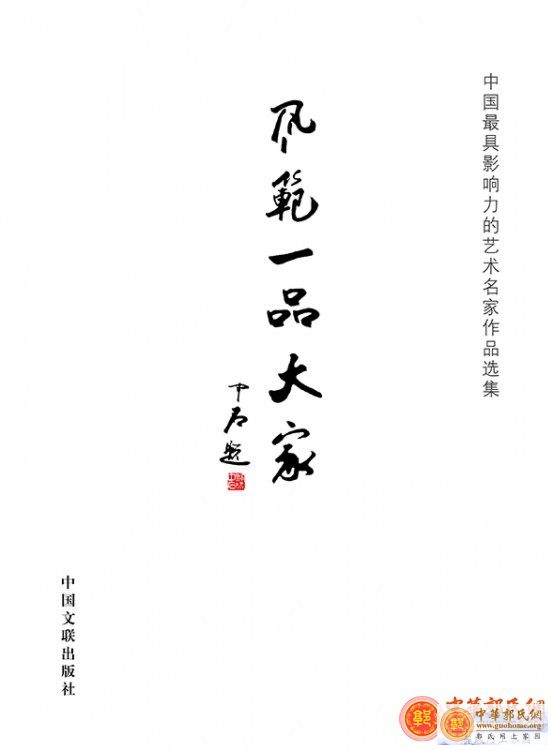 中国最具影响力的艺术名家作品选集
风范一品大家
中石题
中国文联出版社
中華郭氏網
中華郭氏網
www.guohome.org
郭氏网上家园